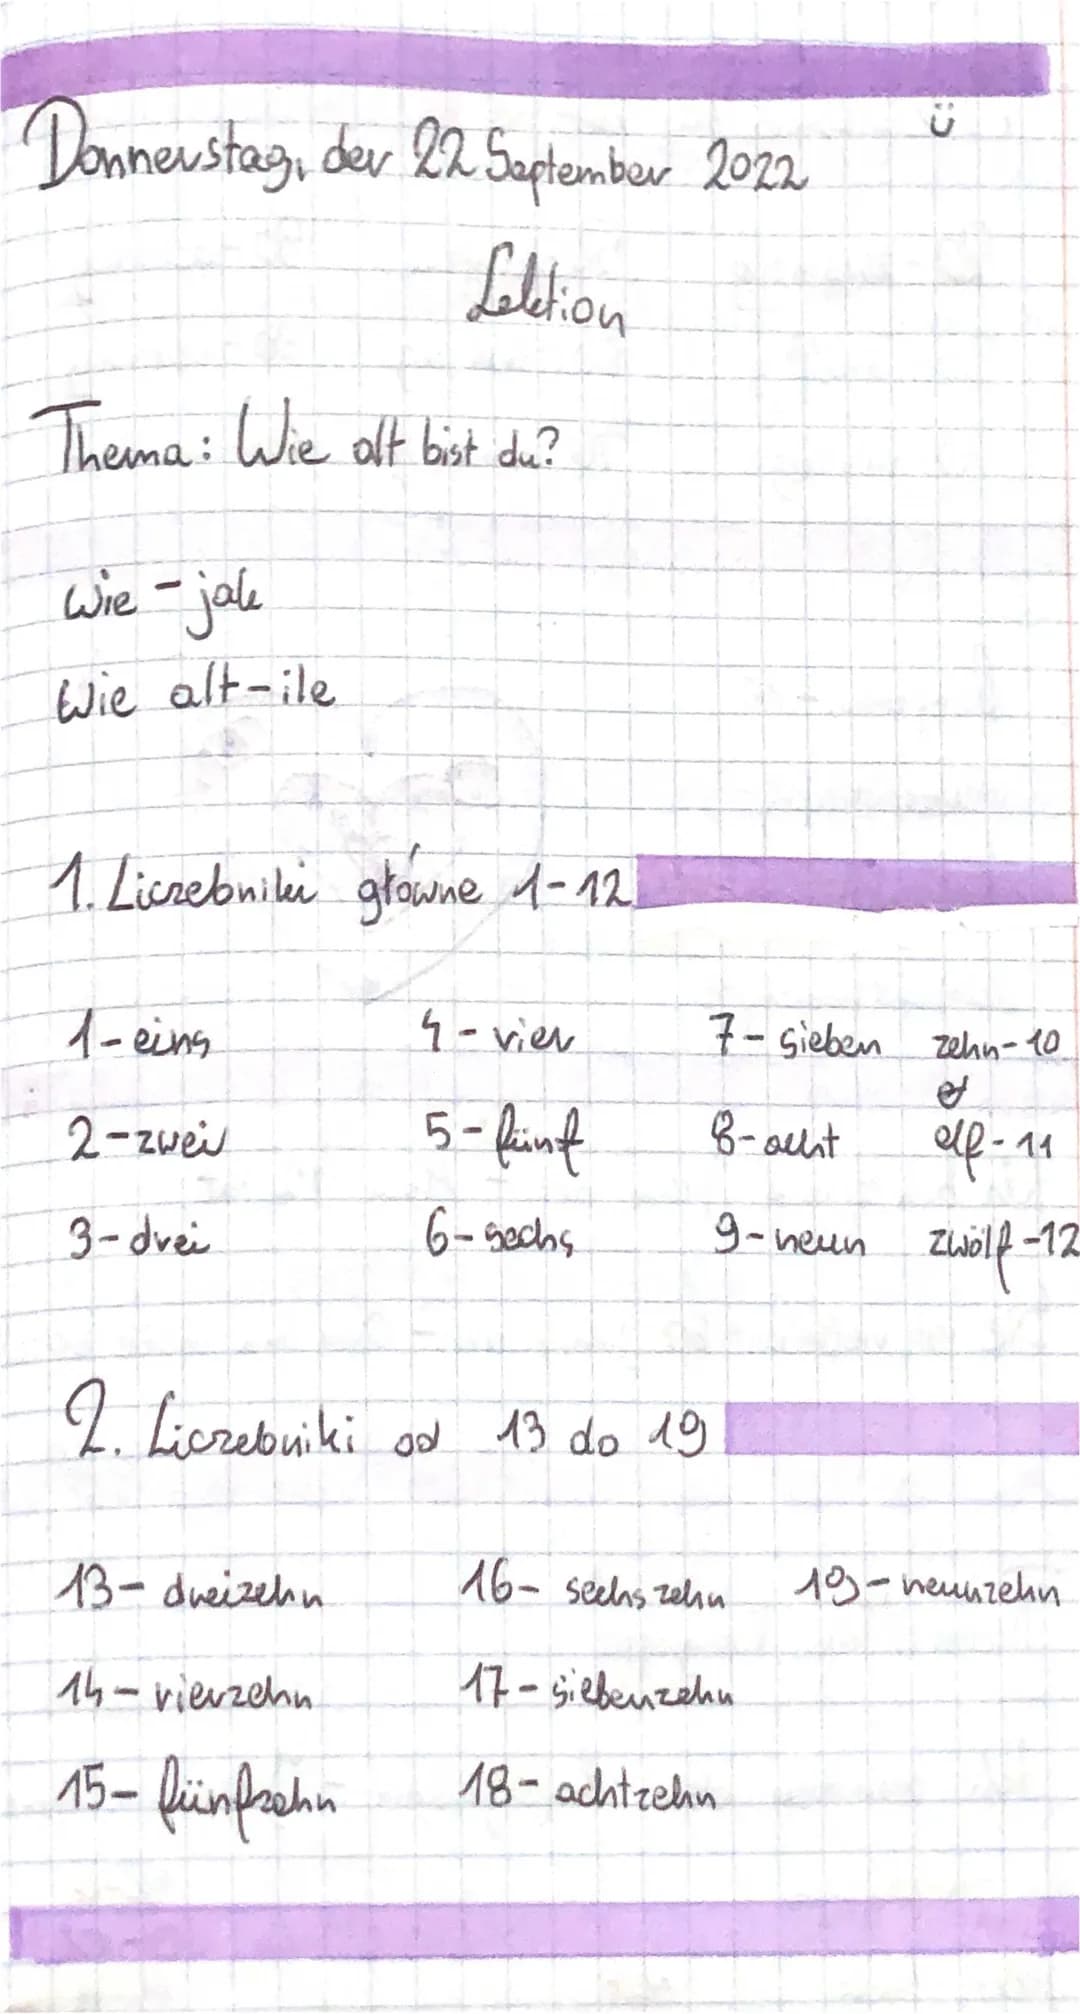 Donnerstag, der 22 September 2022 ü
Lektion
Thema: Wie alt bist du?
Wie - jak
Wie alt - ile
1. Liczebniki główne 1-12
1 - eins 4 - vier 7 - sieben zehn - 10
2 - zwei 5 - fünf 8 - acht elf - 11
3 - drei 6 - sechs 9 - neun zwölf - 12
2. Liczebniki od 13 do 19
13 - dreizehn 16 - sechszehn 19 - neunzehn
14 - vierzehn 17 - siebenzehn
15 - fünfzehn 18 - achtzehn